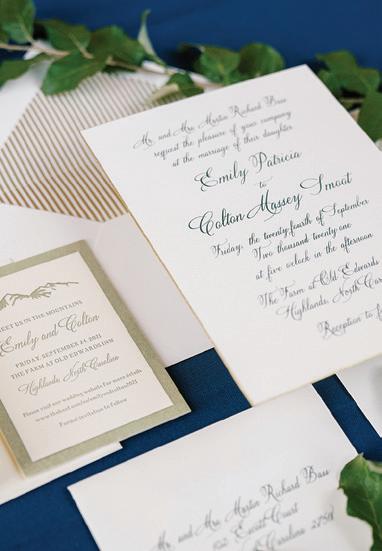 Mr. and Mrs. Martin Richard Bass
request the pleasure of your company
at the marriage of their daughter
Emily Patricia
to
Colton Massey Smoot
Friday, the twenty-fourth of September
Two thousand twenty one
at five o'clock in the afternoon
The Farm at Old Edwards
Highlands, North Caro
Reception to
MEET US IN THE MOUNTAINS
Emily and Colton
FRIDAY, SEPTEMBER 24, 2021
THE FARM AT OLD EDWARDS INN
Highlands, North Carolina
Please visit our wedding website for more details
Formal invitation to Follow
Mr. and Mrs. Martin Richard Bass
Court
Carolina